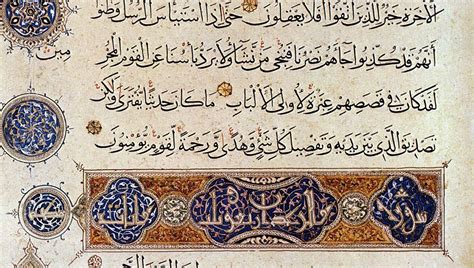 الآخرة خير للذين اتقوا أفلا يعقلون حتى إذا استيئس الرسل وظنوا
أنهم قد كذبوا جاءهم نصرنا فنجي من نشاء ولا يرد بأسنا عن القوم المجر
مين
لقد كان في قصصهم عبرة لأولي الألباب ما كان حديثا يفترى ولكن
تصديق الذي بين يديه وتفصيل كل شيء وهدى ورحمة لقوم يؤمنون
سورة الرعد أربعون مكية